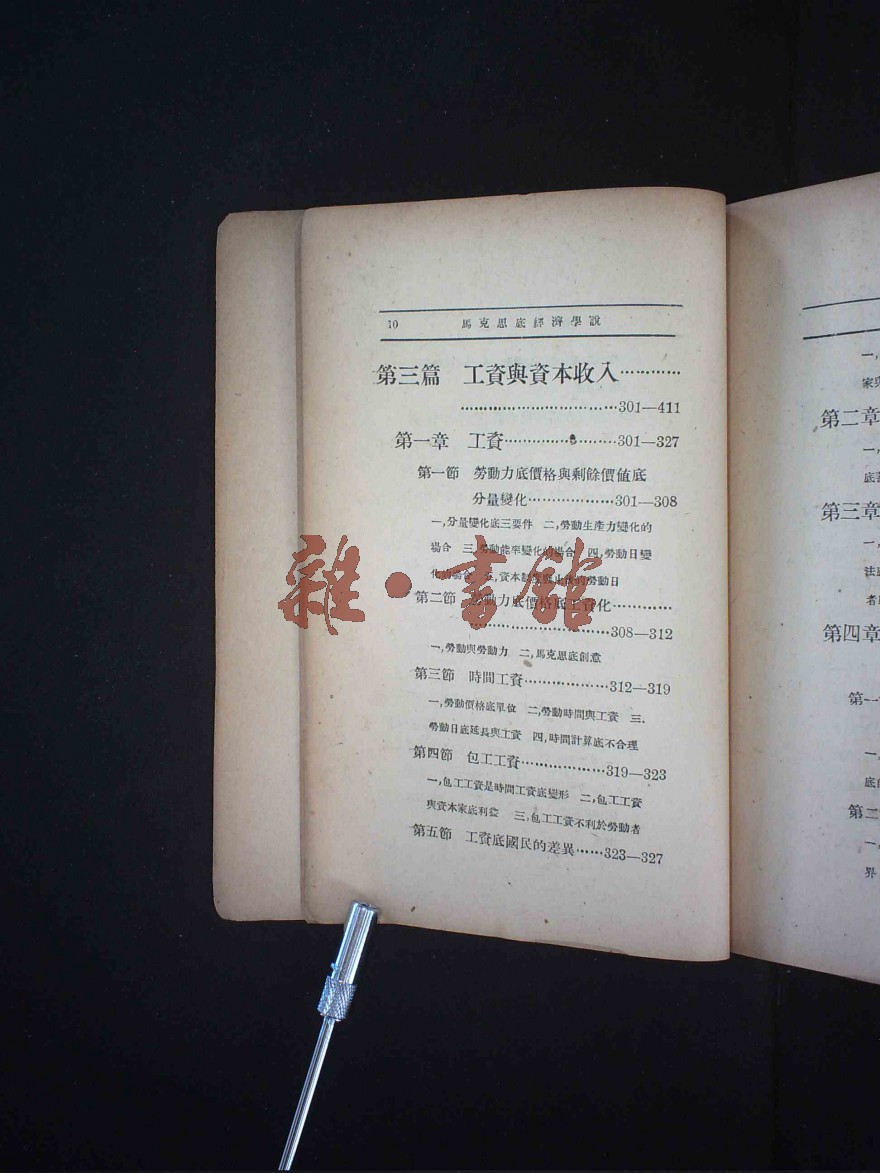 10 馬克思底經濟學說
第三篇 工資與資本收入…………
……………………………301—411
第一章 工資…………………301—327
第一節 勞動力底價格與剩餘價值底
分量變化………………301—308
一,分量變化底三要件 二,勞動生產力變化的
場合 三,勞動能率變化的場合 四,勞動日變
化的場合 五,資本 的勞動日
第二節 勞動力底價格底工資化…………
…………………………308—312
一,勞動與勞動力 二,馬克思底創意
第三節 時間工資………………312—319
一,勞動價格底單位 二,勞動時間與工資 三,
勞動日底延長與工資 四,時間計算底不合理
第四節 包工工資………………319—323
一,包工工資是時間工資底變形 二,包工工資
與資本家底利益 三,包工工資不利於勞動者
第五節 工資底國民的差異……323—327
雜·書館
一,
家與
第二章
一,
第三章
一,
第四章
第一
一,
第二
一,
界